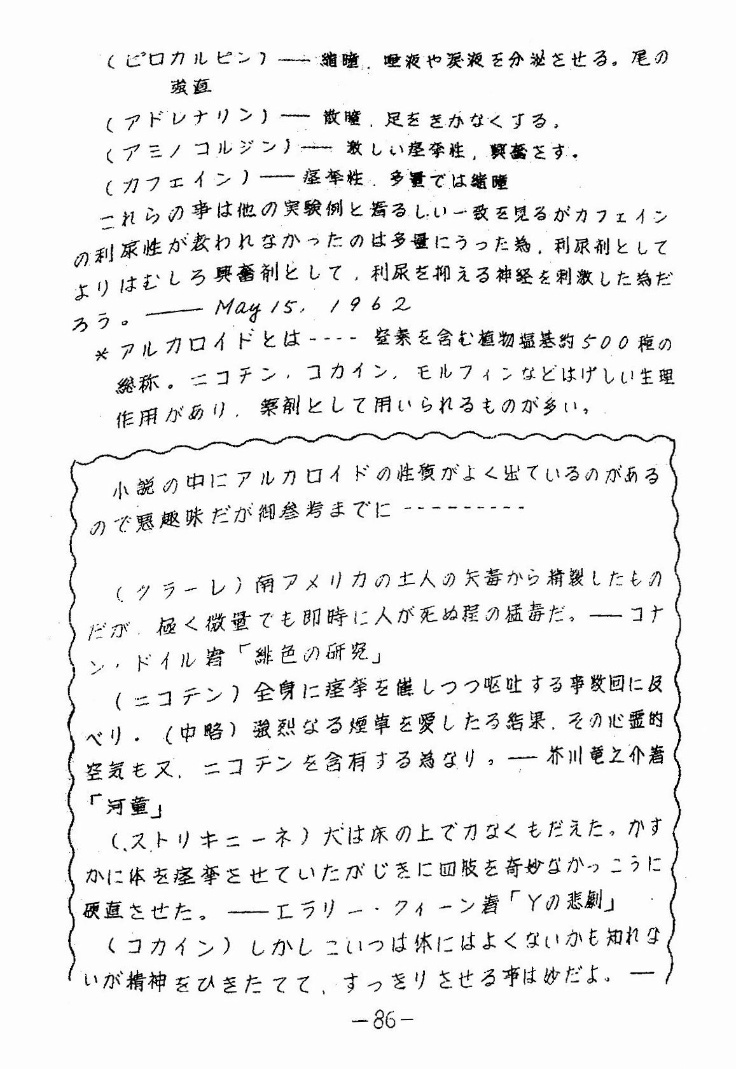 (ピロカルピン)―― 縮瞳、唾液や涙液を分泌させる。尾の
強直
(アドレナリン)―― 散瞳、足をきかなくする。
(アミノコルジン)―― 激しい痙攣性、興奮さす。
(カフェイン)―― 痙攣性、多量では縮瞳
これらの事は他の実験例と着るしい一致を見るがカフェイン
の利尿性が表われなかったのは多量にうった為、利尿剤として
よりはむしろ興奮剤として、利尿を抑える神経を刺激した為だ
ろう。―― May 15, 1962
*アルカロイドとは---- 窒素を含む植物塩基約500種の
総称。ニコチン、コカイン、モルフィンなどはげしい生理
作用があり、薬剤として用いられるものが多い。
小説の中にアルカロイドの性質がよく出ているのがある
ので悪趣味だが御参考までに ---------
(クラーレ)南アメリカの土人の矢毒から精製したもの
だが、極く微量でも即時に人が死ぬ程の猛毒だ。―― コナ
ン・ドイル著「緋色の研究」
(ニコチン)全身に痙攣を催しつつ呕吐する事数回に及
べり。(中略)強烈なる煙草を愛したる結果、その心霊的
空気も又、ニコチンを含有する為なり。―― 芥川竜之介著
「河童」
(ストリキニーネ)犬は床の上で力なくもだえた。かす
かに体を痙攣させていたがじきに四肢を奇妙なかっこうに
硬直させた。―― エラリー・クィーン著「Yの悲劇」
(コカイン)しかしこいつは体にはよくないかも知れな
いが精神をひきたてて、すっきりさせる事は妙だよ。――
-86-